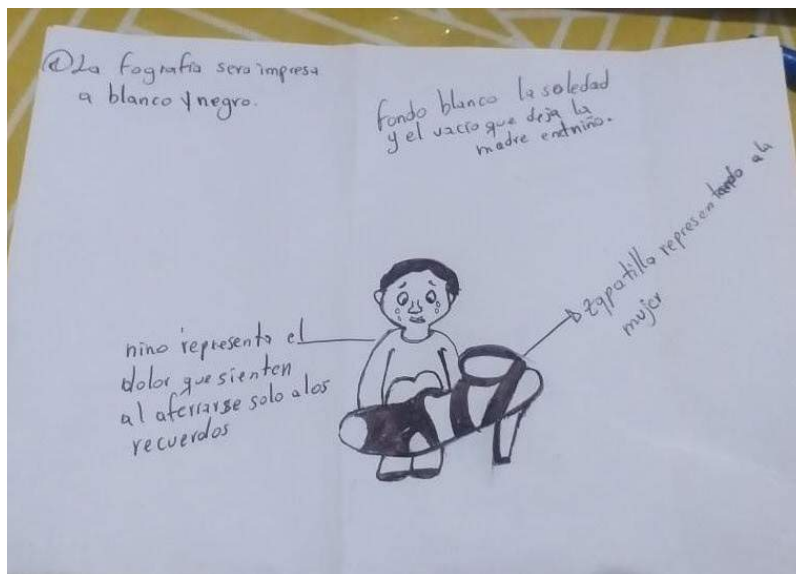 ① La fografía sera impresa
a blanco y negro.
fondo blanco la soledad
y el vacío que deja la
madre en el niño.
nino representa el
dolor que sienten
al aferrarse solo a los
recuerdos
zapatilla representando a la
mujer